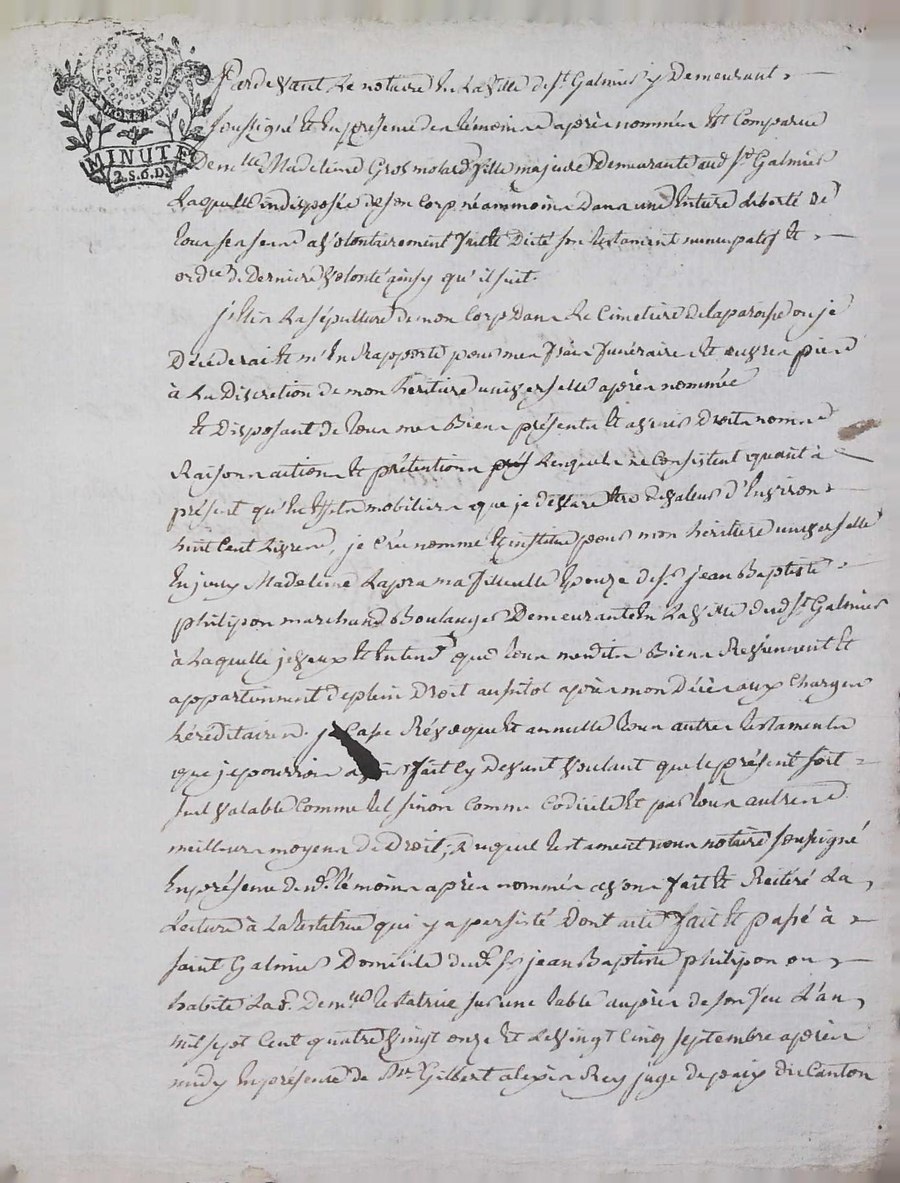 MINUTE
2.S.6.D.
Pardevant Le notaire En La Ville de St Galmier y Demeurant
soussigné Et En présence des témoins après nommés Est Comparue
Demlle Madeleine Grosmolard fille majeure Demeurante aud St Galmier
Laquelle indisposée de son Corp néammoins Dans une Entiere liberté de
tous ses sens a Volontairement fait Et Dicté son testament nunupatif Et
ordce de Derniere Volonté ainsy qu'il suit.
j'Elis La sépulture de mon Corp Dans Le Cimetiere de la paroisse ou je
Décederai Et m'En Rapporte pour mes frais funéraires Et œuvres pies
à La Discretion de mon héritiere universelle après nommée
Et Disposant de tous mes Biens présents Et avenir Droits noms
Raisons actions Et prétentions lesquels ne Consistent quant à
présent qu'En Effets mobiliers que je déclare Etre de Valeur d'Environ
huit Cent Livres, je Crée nomme Et institue pour mon héritiere universelle
Madeleine Lapra ma filleulle Epouze de sr jean Baptiste
philipon marchand Boulanger Demeurante En La Ville dud St Galmier
à Laquelle je Veux Et Entends que tous mesdits Biens Reviennent Et
appartiennent de plein Droit aussitot après mon Décès aux Charges
héréditaires. je Casse Révoque Et annulle tous autres testaments
que je pourrois avoir fait Cy Devant Voulant que le présent soit
seul Valable Comme tel sinon Comme Codicile Et par tous autres
meilleurs moyens de Droit, Duquel testament nous notaire soussigné
En présence desd. témoins après nommés avons fait Et Reitéré La
Lecture à La testatrice qui y a persisté Dont acte fait Et passé à
saint Galmier Domicile dud. sr jean Baptiste philipon ou
habite Lad. Demlle testatrice sur une table auprès de son feu L'an
mil sept Cent quatre Vingt onze Et Le Vingt Cinq septembre après
midy En présence de Gilbert alexis Rey juge de paix du Canton